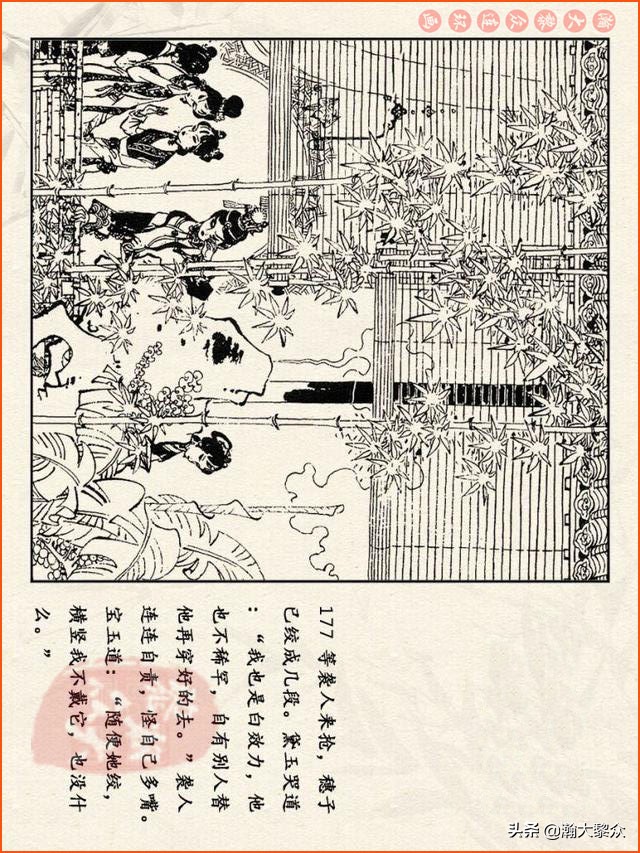 瀚大黎众连环画
177 等袭人来抢，穗子
已绞成几段。黛玉哭道
：“我也是白效力，他
也不稀罕，自有别人替
他再穿好的去。”袭人
连连自责，怪自己多嘴。
宝玉道：“随便她绞，
横竖我不戴它，也没什
么。”
头条 @瀚大黎众